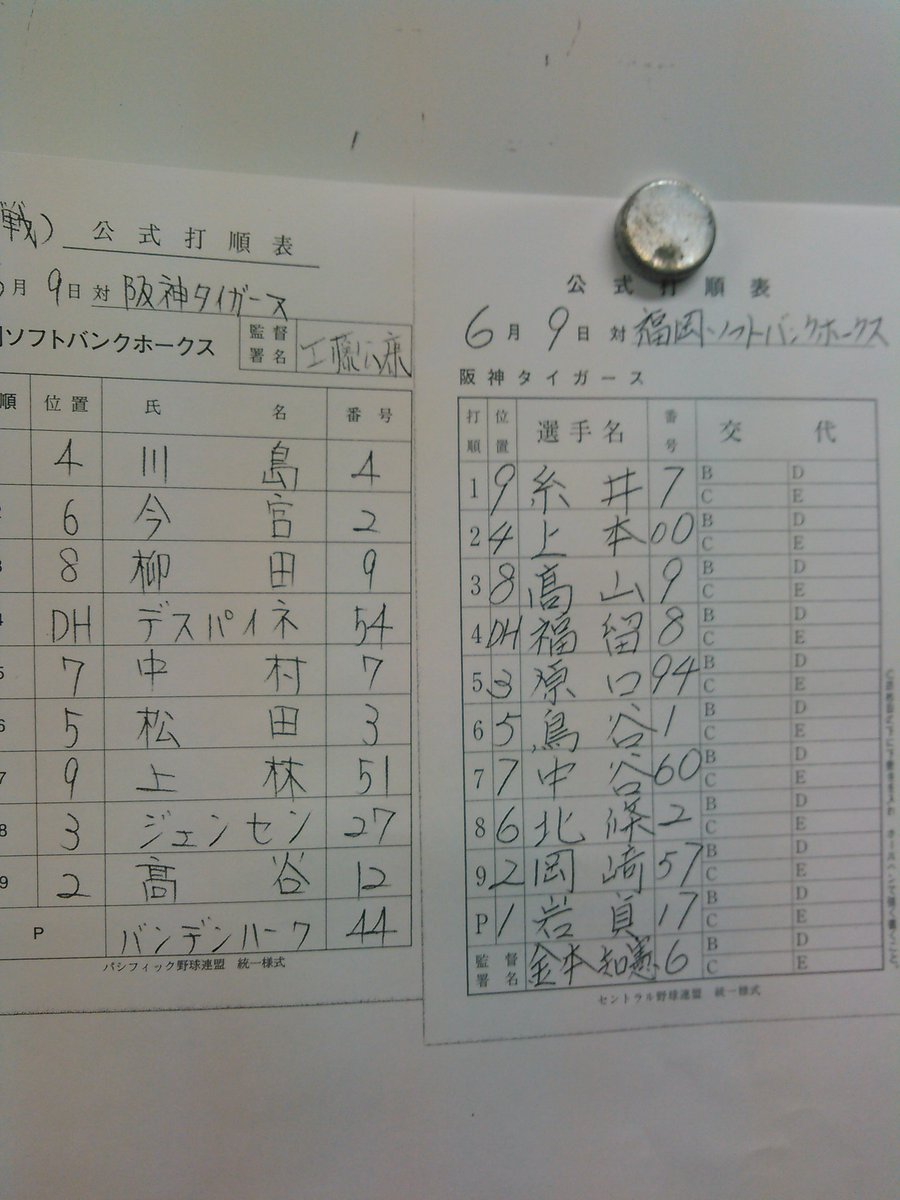 戦) 公式打順表
月 9日 対 阪神タイガース
ソフトバンクホークス 監督署名 工藤公康
順 位置 氏名 番号
4 川島 4
6 今宮 2
8 柳田 9
DH デスパイネ 54
5 7 中村 7
6 5 松田 3
7 9 上林 51
8 3 ジェンセン 27
9 2 高谷 12
P バンデンハーク 44
パシフィック野球連盟 統一様式
公式打順表
6月 9日 対 福岡ソフトバンクホークス
阪神タイガース
打順 位置 選手名 番号 交代
1 9 糸井 7 B D C E
2 4 上本 00 B D C E
3 8 髙山 9 B D C E
4 DH 福留 8 B D C E
5 3 原口 94 B D C E
6 5 鳥谷 1 B D C E
7 7 中谷 60 B D C E
8 6 北條 2 B D C E
9 2 岡﨑 57 B D C E
P 1 岩貞 17 B D C E
監督署名 金本知憲 6 B D C E
セントラル野球連盟 統一様式